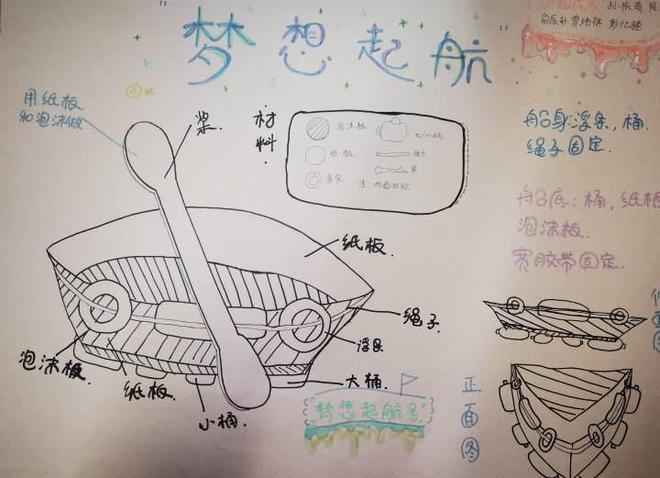 "梦想起航"
用纸板
和泡沫做
桨.
材料
泡沫板
纸板
浮条
大/小桶
绳子
桨
纸板.
绳子.
浮条
大桶.
小桶.
纸板.
泡沫板.
"梦想起航号"
船身:浮条,桶.
绳子固定.
船底:桶,纸板
泡沫板.
宽胶带固定.
正面图